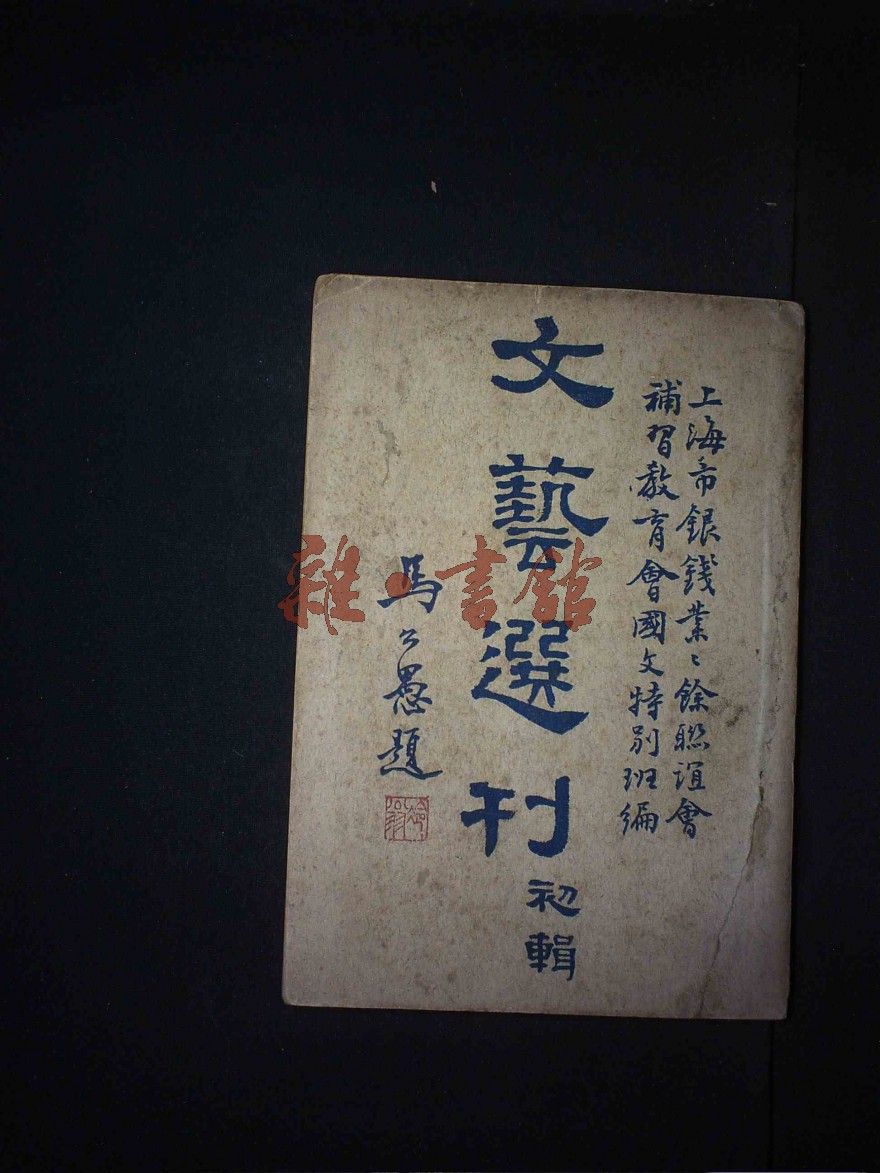 上海市銀錢業々餘聯誼會
補習教育會國文特別班編
文藝選刊
初輯
馬公愚題
雜書館